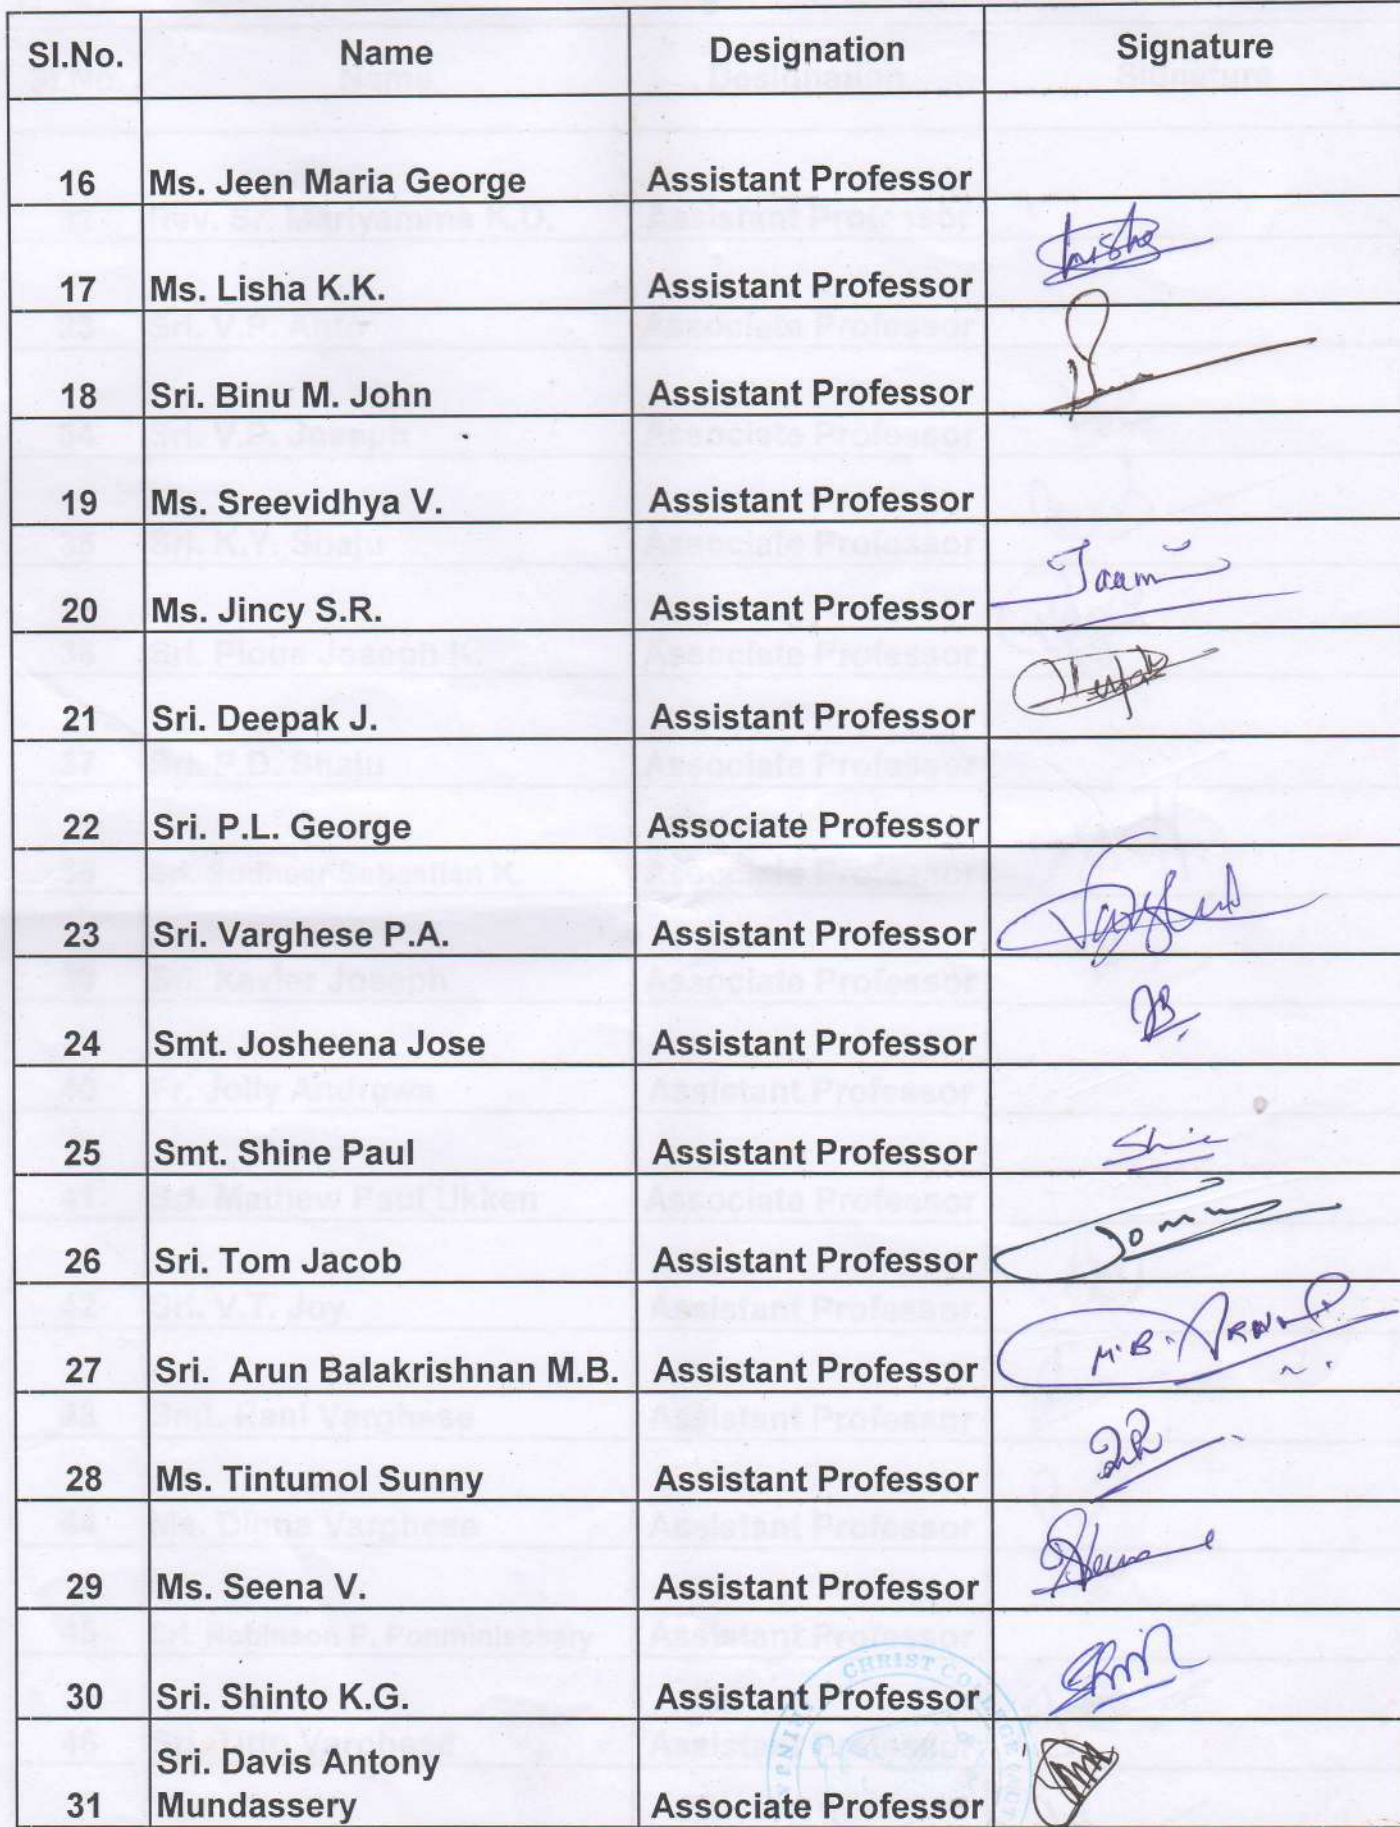 Sl.No. Name Designation Signature
16 Ms. Jeen Maria George Assistant Professor
17 Ms. Lisha K.K. Assistant Professor Lisha
18 Sri. Binu M. John Assistant Professor
19 Ms. Sreevidhya V. Assistant Professor
20 Ms. Jincy S.R. Assistant Professor
21 Sri. Deepak J. Assistant Professor
22 Sri. P.L. George Associate Professor
23 Sri. Varghese P.A. Assistant Professor
24 Smt. Josheena Jose Assistant Professor
25 Smt. Shine Paul Assistant Professor
26 Sri. Tom Jacob Assistant Professor
27 Sri. Arun Balakrishnan M.B. Assistant Professor M.B.
28 Ms. Tintumol Sunny Assistant Professor
29 Ms. Seena V. Assistant Professor
CHRIST COLLEGE
30 Sri. Shinto K.G. Assistant Professor
Sri. Davis Antony
31 Mundassery Associate Professor